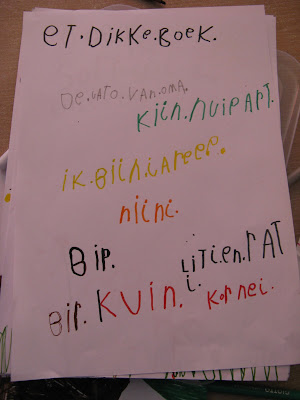 eT.DiKKe.BoeK.
De.vaTo.van.oMa.
Kiin.nuipApT.
iK.Biin.Lareer.
niini.
Bip.
LiTien.rAT
i.
Bip. KVin. Kornei.